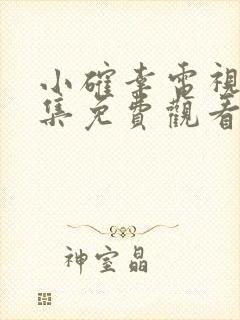 小確幸電視
集免費觀看
神室晶